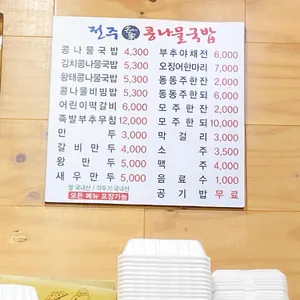 전주 콩나물국밥
콩나물국밥 4,300
김치콩나물국밥 5,300
황태콩나물국밥 5,300
콩나물비빔밥 5,300
어린이떡갈비 6,000
족발부추무침 12,000
만두 3,000
갈비만두 4,000
왕만두 5,000
새우만두 5,000
부추야채전 6,000
오징어한마리 7,000
동동주한잔 2,000
동동주한되 6,000
모주한잔 2,000
모주한되 10,000
막걸리 3,000
소주 3,500
맥주 4,000
음료수 1,000
공기밥 무료
쌀 국내산 / 깍두기 국내산
모든 메뉴 포장가능